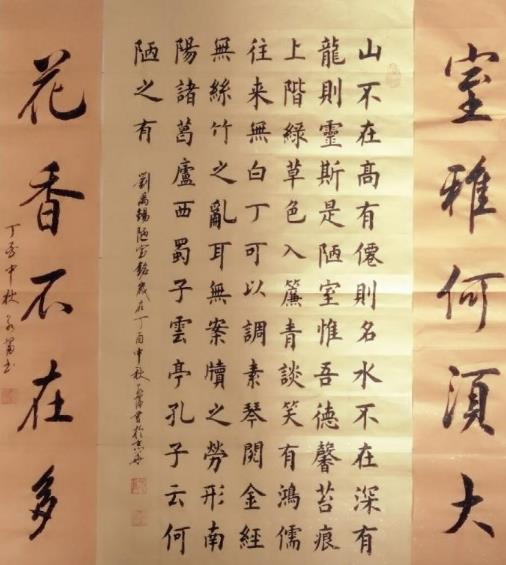 室雅何須大
山不在高有僊則名水不在深有
龍則靈斯是陋室惟吾德馨苔痕
上階綠草色入簾青談笑有鴻儒
往来無白丁可以調素琴閱金經
無絲竹之亂耳無案牘之勞形南
陽諸葛廬西蜀子雲亭孔子云何
陋之有
劉禹錫陋室銘歲在丁酉中秋書於
花香不在多
丁酉中秋書